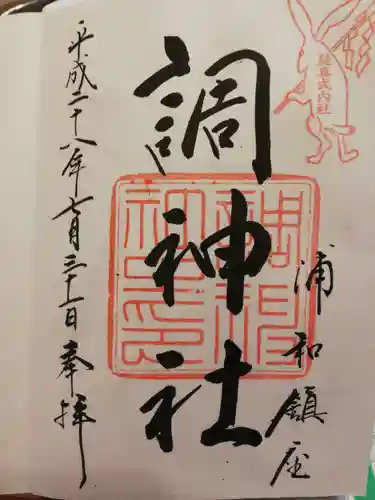 延喜式内社
浦和鎮座
調神社
平成二十八年七月三十一日奉拝